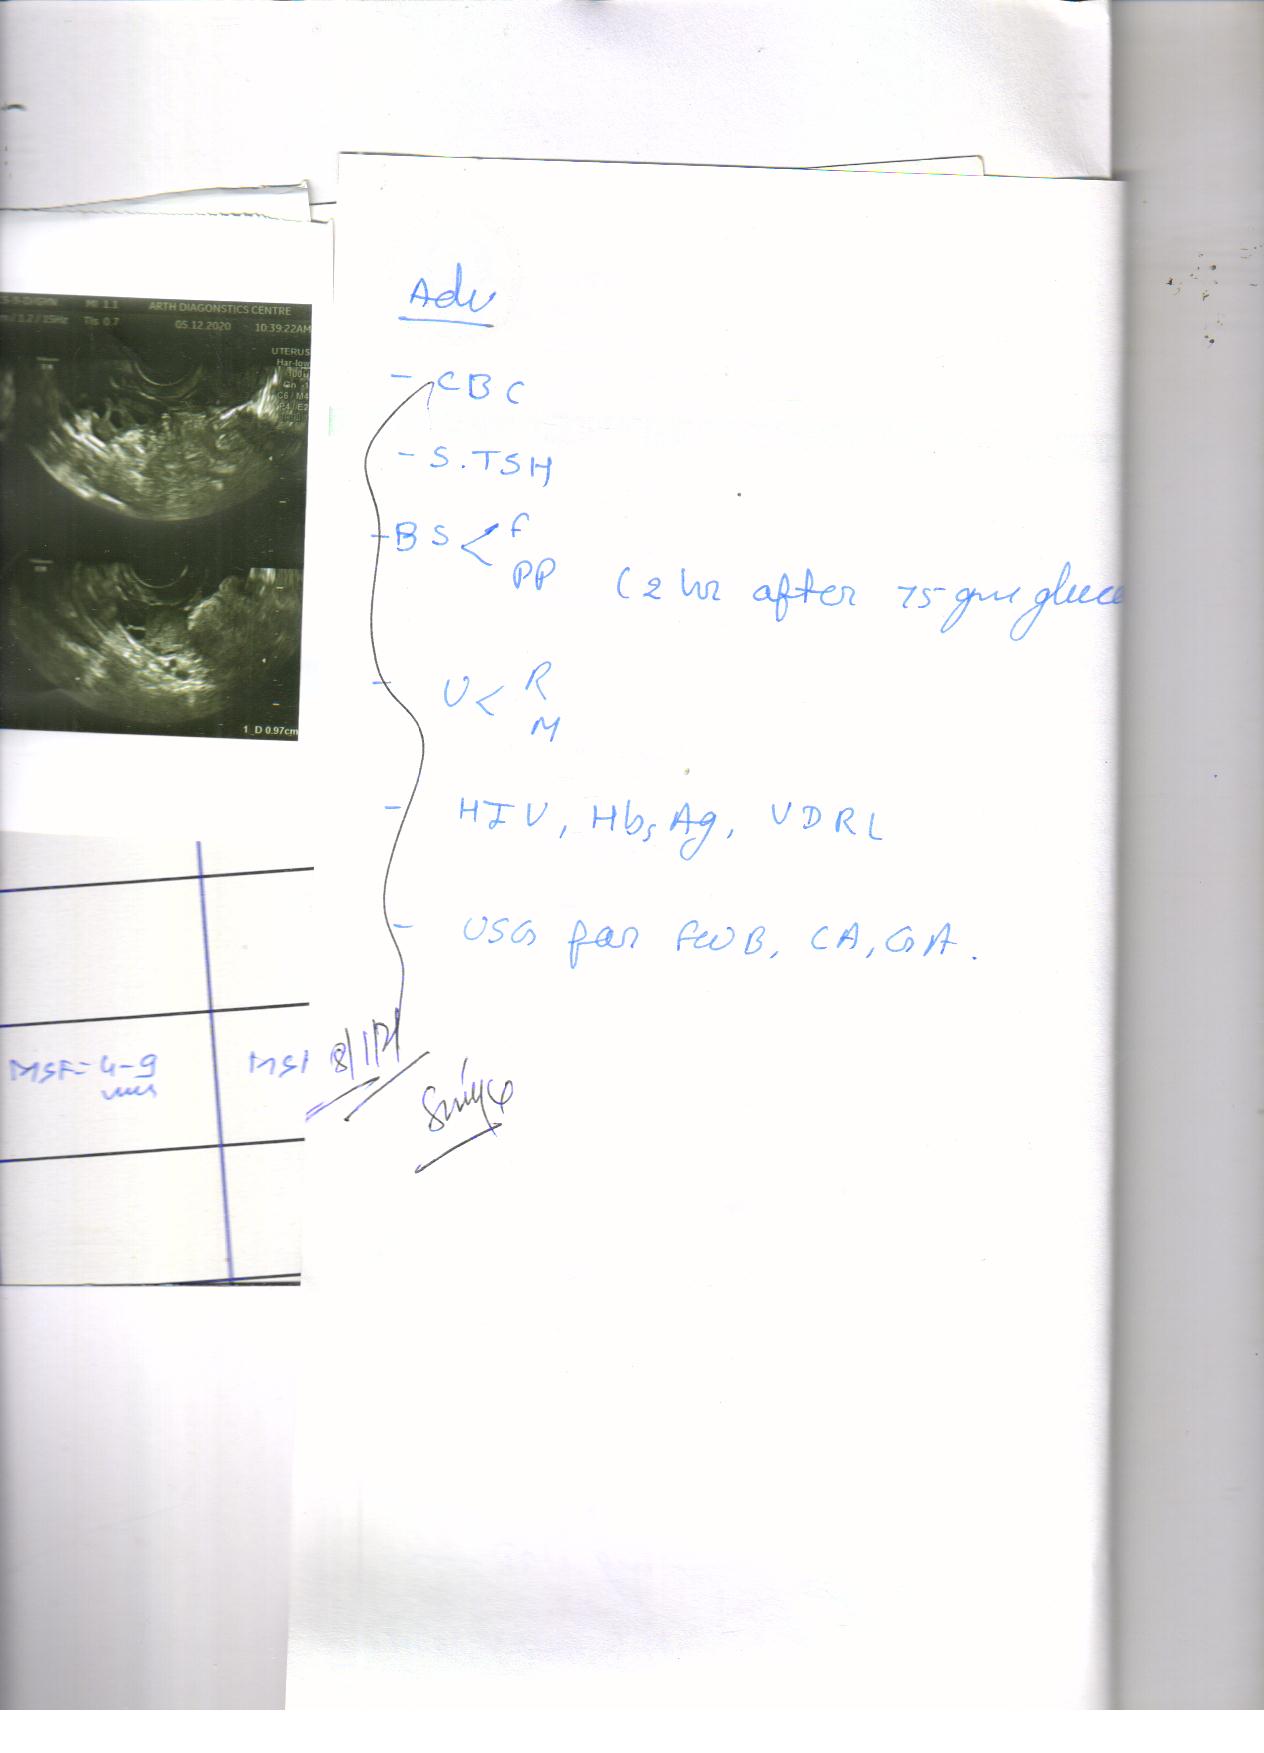 MI 1.1 ARTH DIAGONSTICS CENTRE
Tis 0.7 05.12.2020 10:39:22AM
UTERUS
Har-low
100
Gn -1
C6 / M4
P4 / E2
1 D 0.97cm
MSF= 4-9
MSF
Adv
- CBC
- S.TSH
- BS < F
PP (2 hr after 75 gm gluco
- U < R
M
- HIV, HbsAg, VDRL
- USG for FWB, CA, GA.
8/1/21